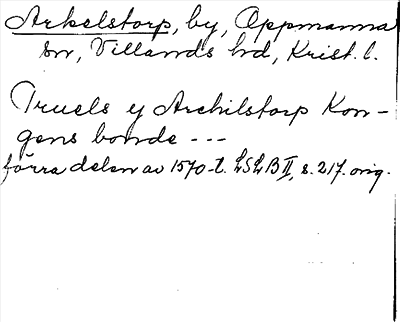 Arkelstorp, by, Oppmanna
sn, Villands hd, Krist. l.
Truels y Archilstorp Kon-
gens bonde - - -
förra delen av 1570-t. LSLB II, s. 217. orig.